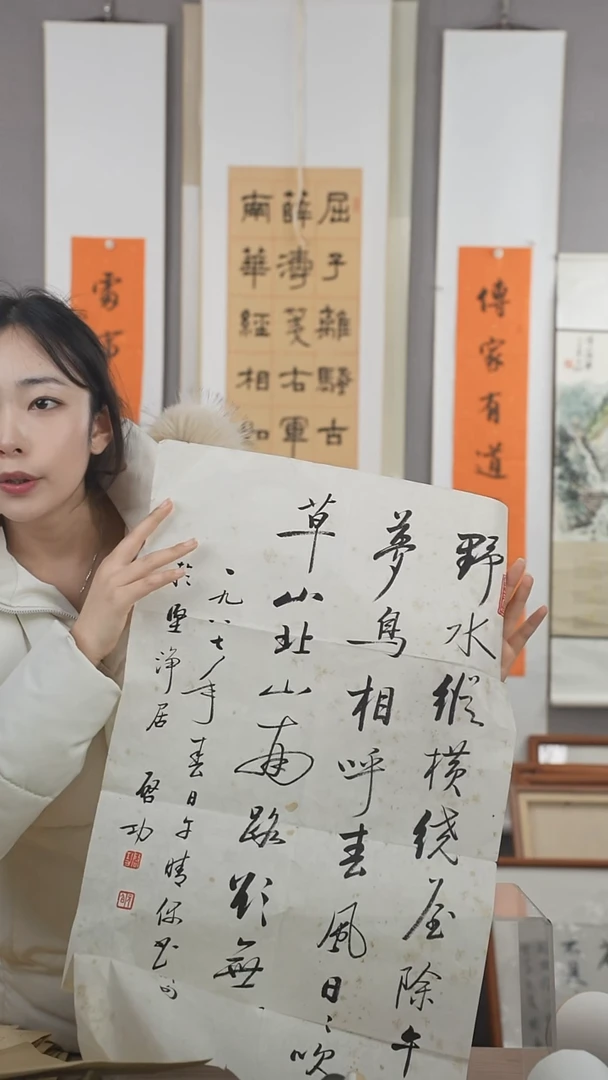 傳家有道
屈子離騷古
薛濤箋右軍
南華經相如
野水縱横绕屋除午
夢鳥相呼春風日〻吹
草山北山南路欲無
一九八七年春日午晴
於堅浄居
啓功